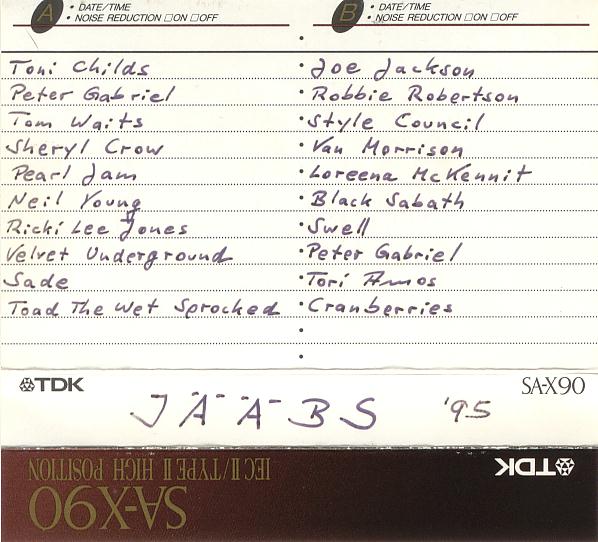 A • DATE/TIME
• NOISE REDUCTION □ON □OFF
B • DATE/TIME
• NOISE REDUCTION □ON □OFF
Toni Childs
Peter Gabriel
Tom Waits
Sheryl Crow
Pearl Jam
Neil Young
Ricki Lee Jones
Velvet Underground
Sade
Toad The Wet Sprocked
• Joe Jackson
• Robbie Robertson
• Style Council
• Van Morrison
• Loreena McKennit
• Black Sabath
• Swell
• Peter Gabriel
• Tori Amos
• Cranberries
TDK
SA-X90
JÄÄBS '95
TDK
IEC II/TYPE II HIGH POSITION
SA-X90